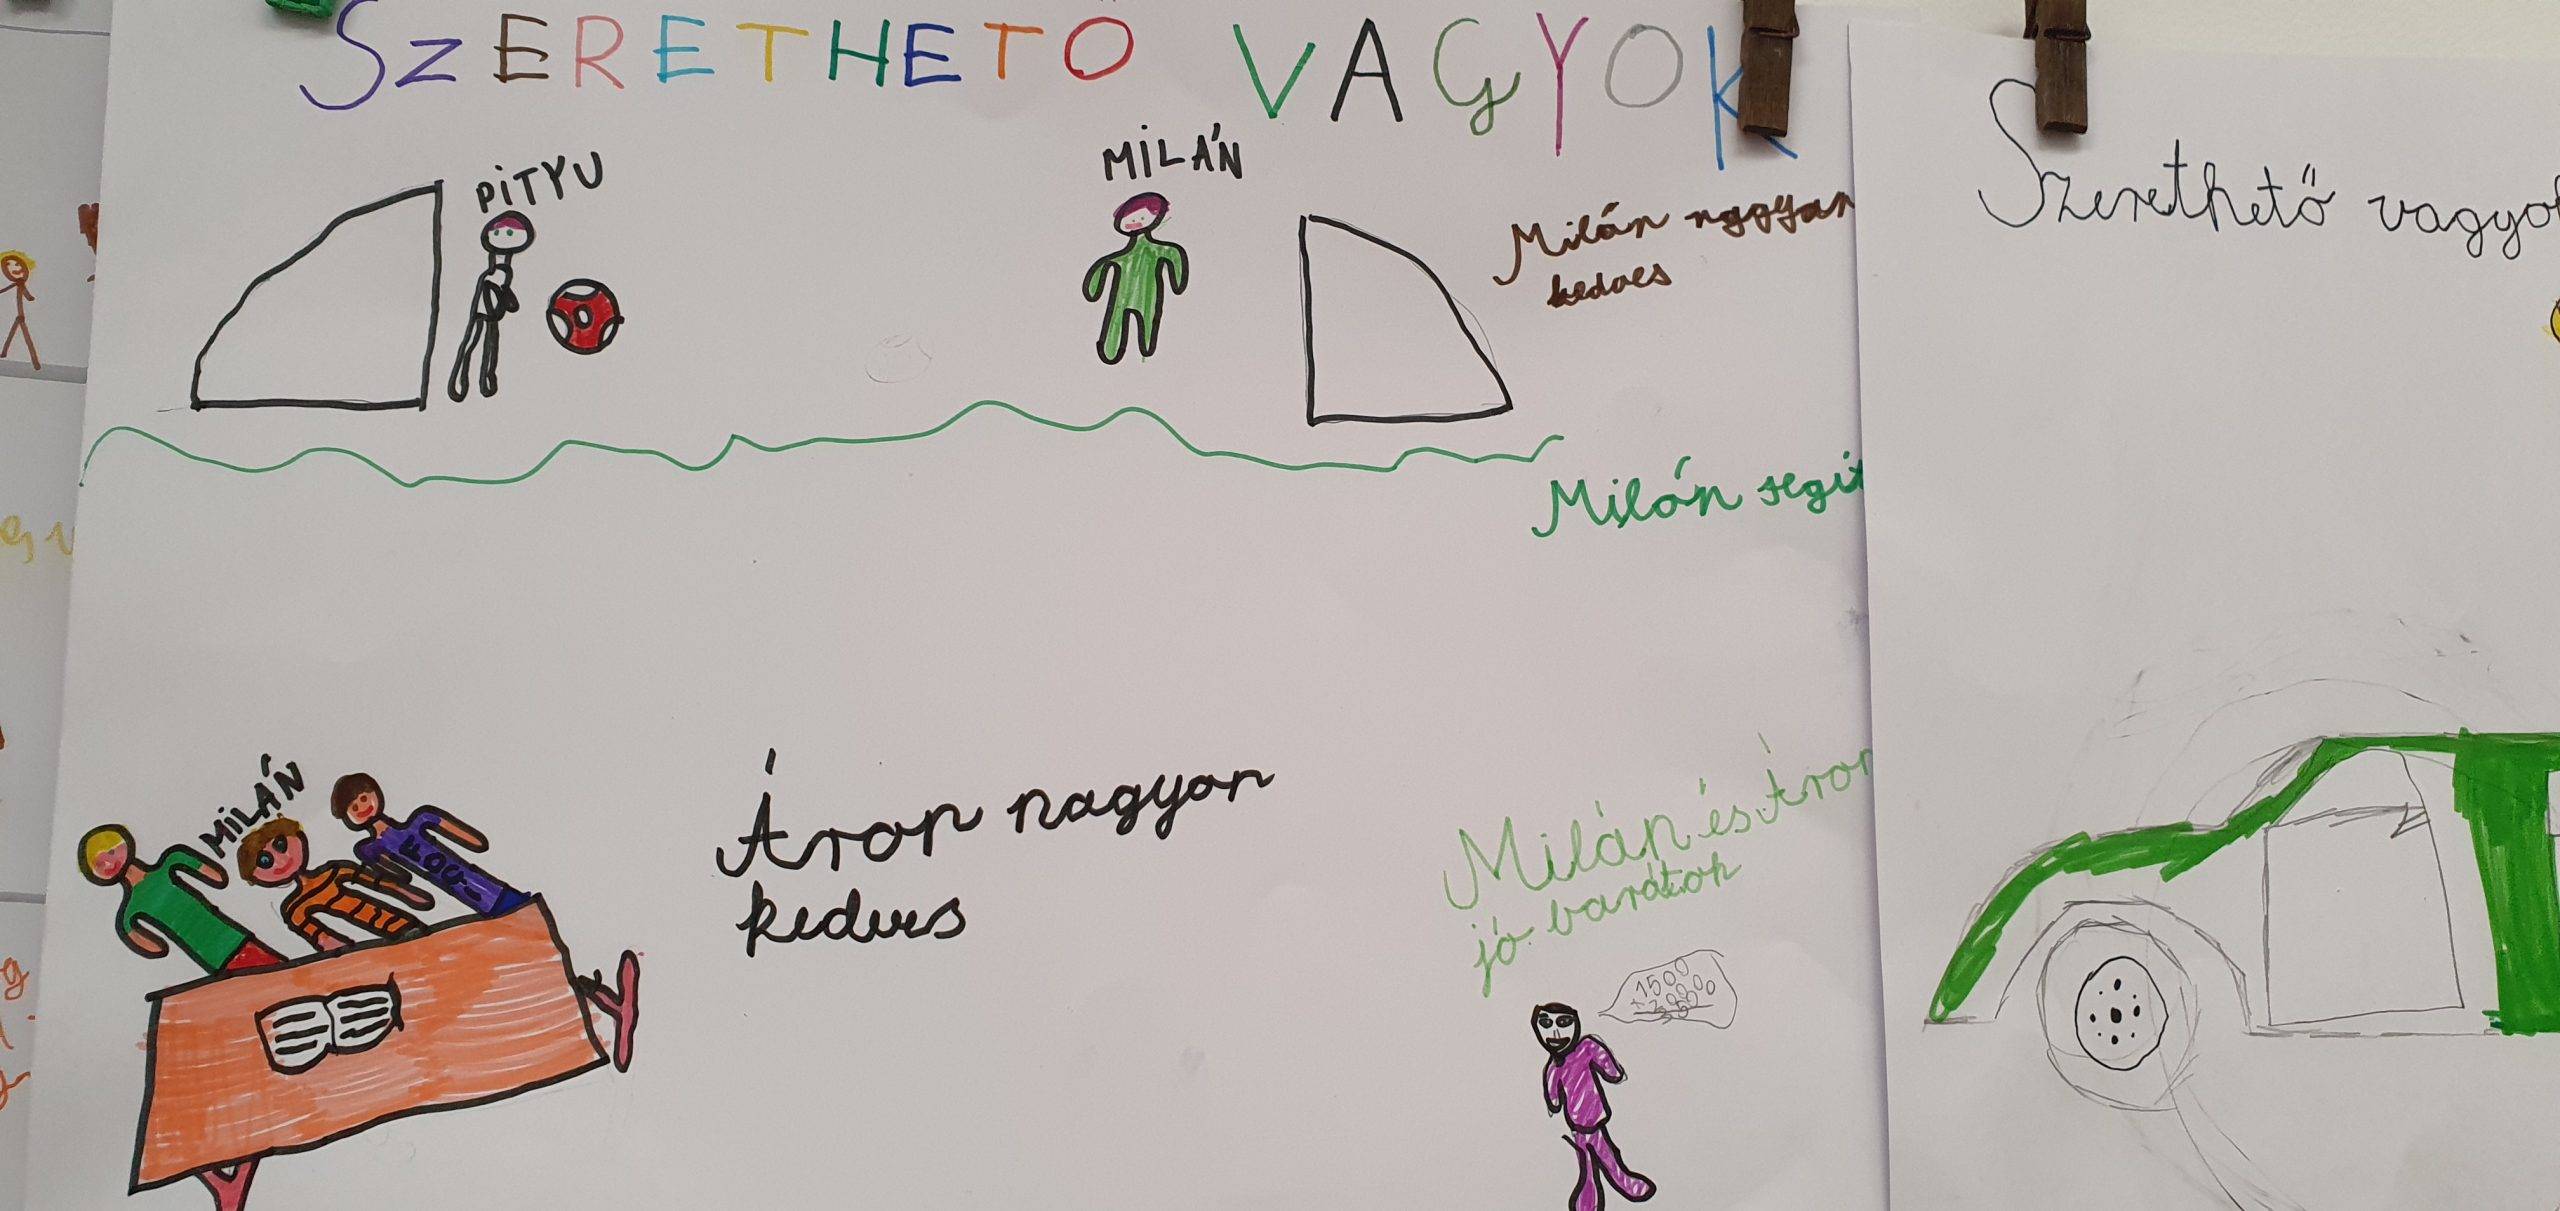 SZERETHETŐ VAGYOK
PiTYU
MiLÁN
Milán nagyon
kedves
Milán segít
MiLÁN
FOCI
Áron nagyon
kedves
Milán és Áron
jó barátok
1500
Szerethető vagyok